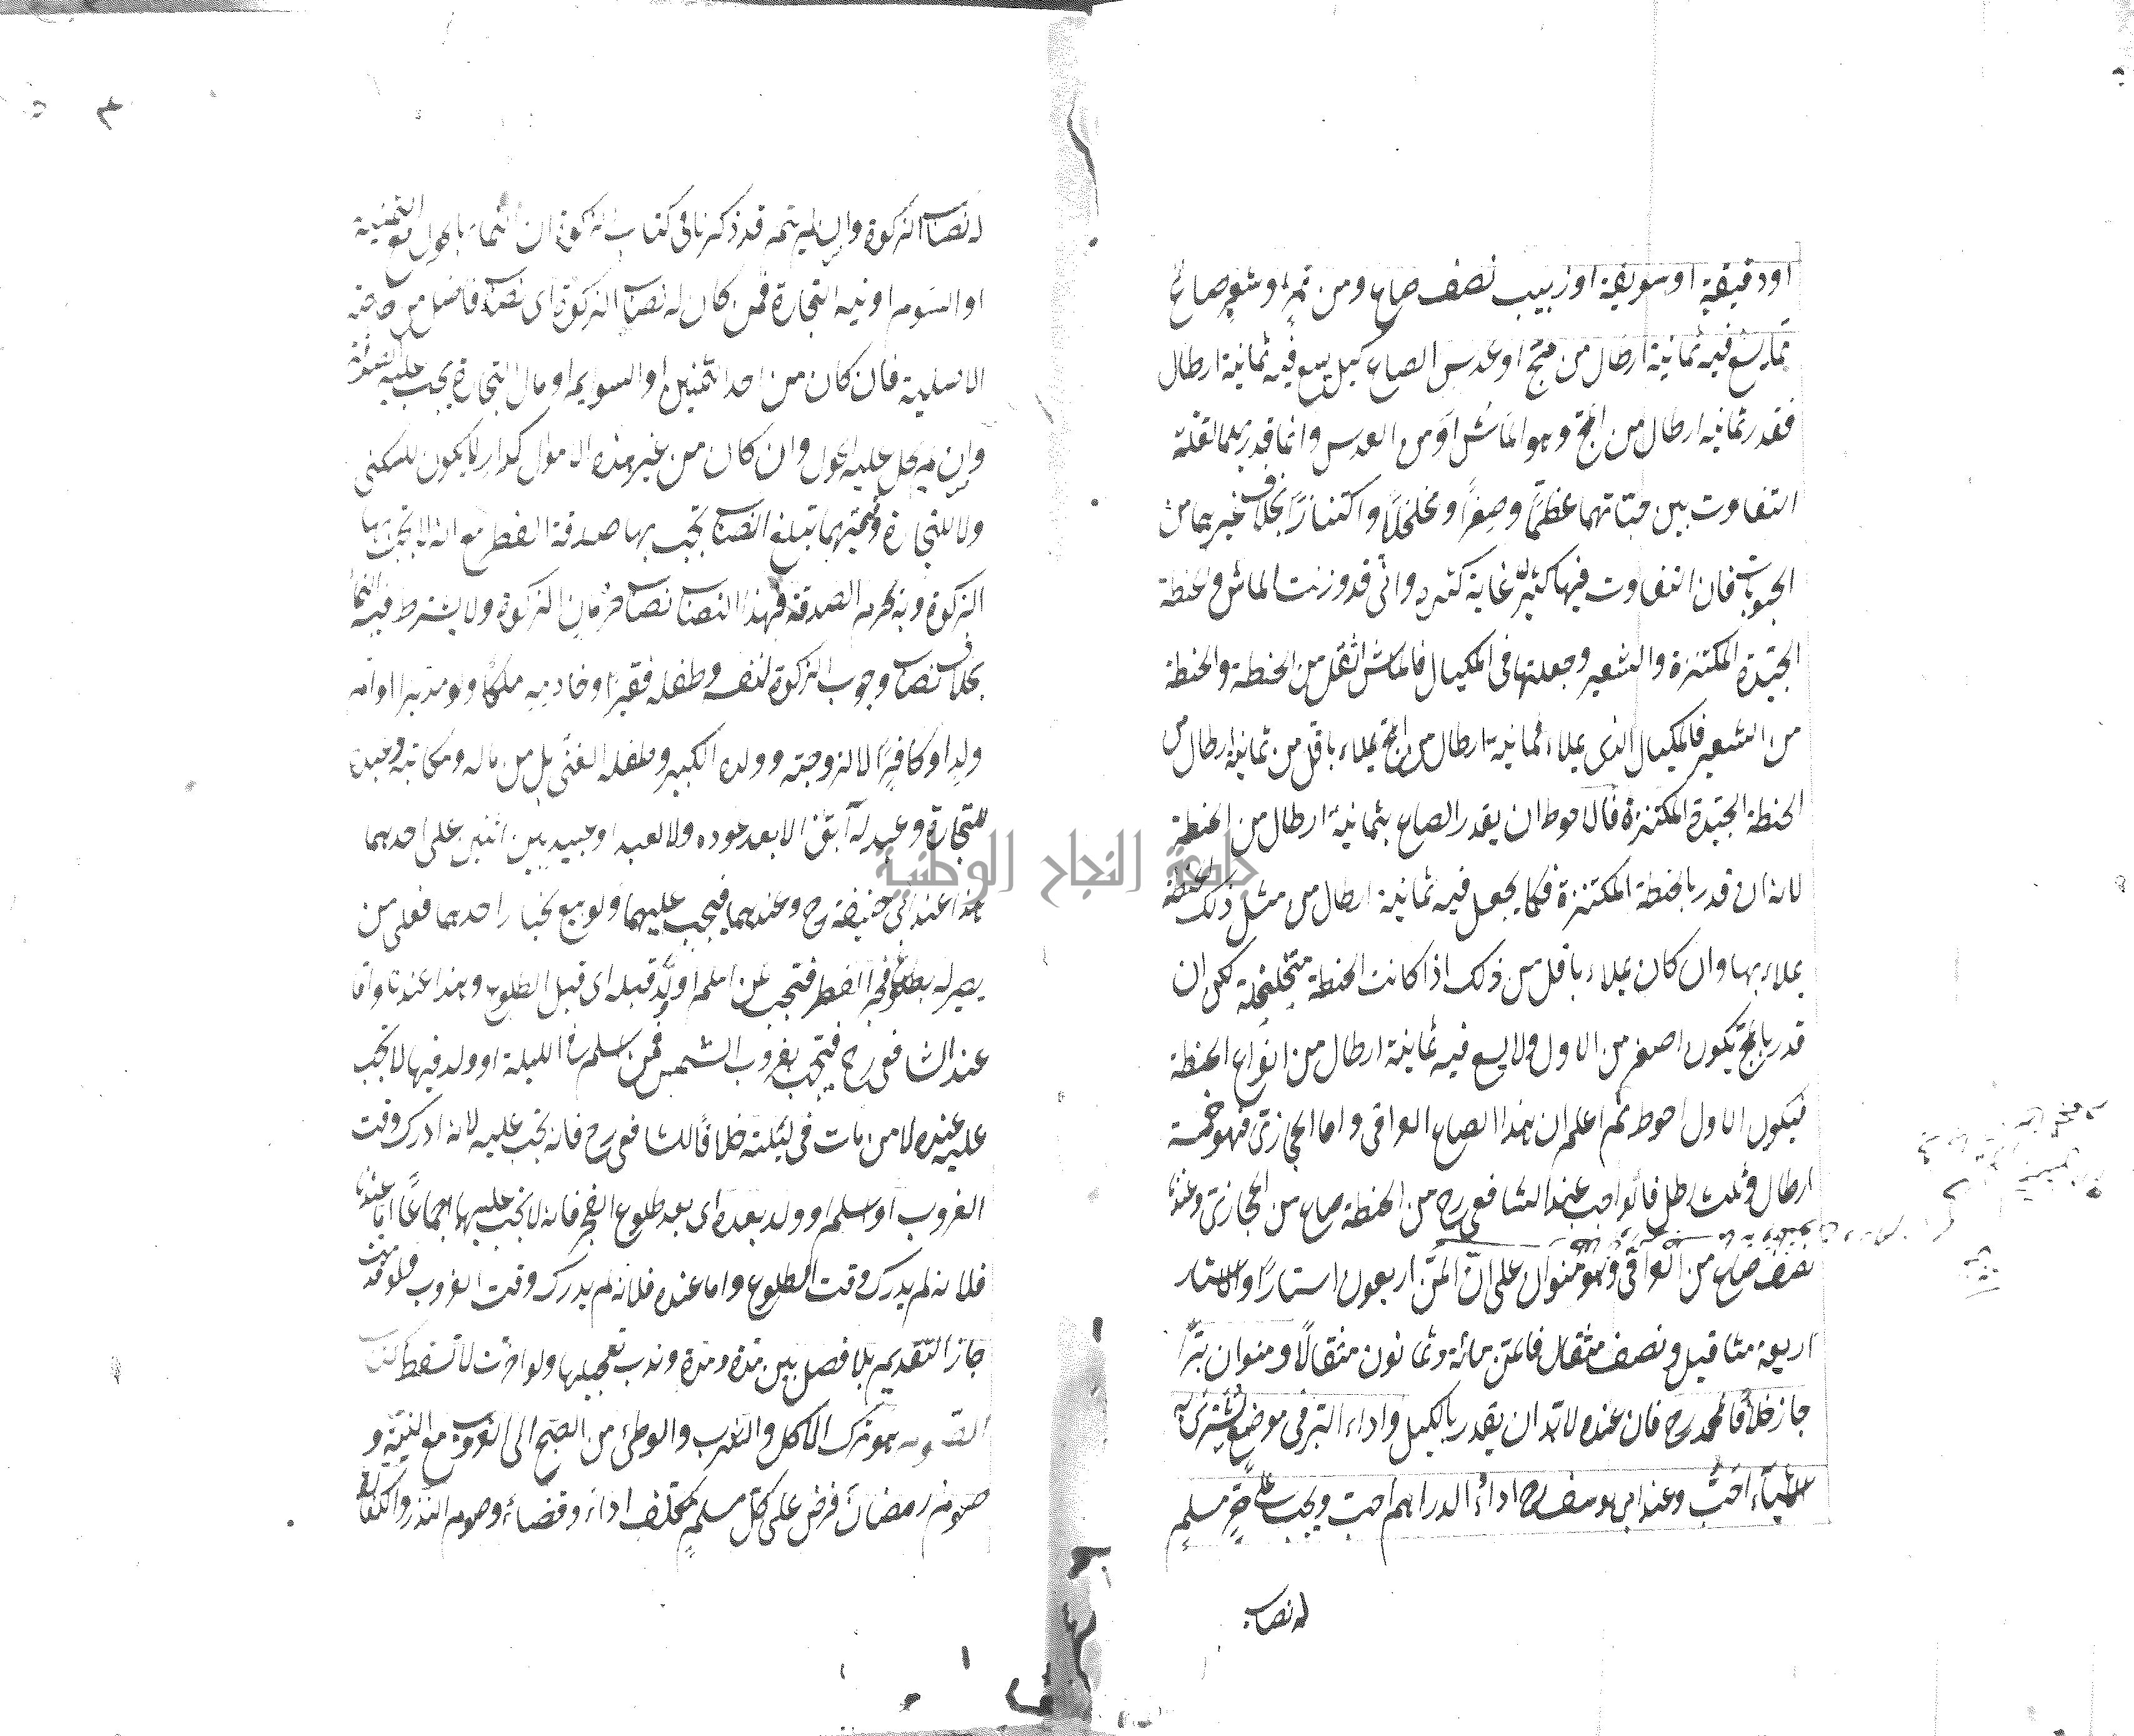 او دقيقه او سويقه او زبيب نصف صاع ومن تمر او شعير صاع
مما يسع فيه ثمانية ارطال من مج او عدس الصاع كيل يسع فيه ثمانية ارطال
فقدر ثمانية ارطال من المج وهو الماش او من العدس وانما قدر بهما لقلة
التفاوت بين حباتهما عظما وصغرا وتخلخلا واكتنازا بخلاف غيرهما من
الحبوب فان التفاوت فيها كثير غاية كثرة واني قد وزنت الماش والحنطة
الجيدة المكتنزة والشعير وجعلتها في المكيال فالماش اثقل من الحنطة والحنطة
من الشعير فالمكيال الذي يملاء بثمانية ارطال من المج يملاء باقل من ثمانية ارطال من
الحنطة الجيدة المكتنزة فالاحوط ان يقدر الصاع بثمانية ارطال من الحنطة
لانه ان قدر بالحنطة المكتنزة فكلما يجعل فيه ثمانية ارطال من مثل ذلك الحنطة
يملاء بها وان كان يملاء باقل من ذلك اذا كانت الحنطة متخلخلة لكن ان
قدر بالمج يكون اصغر من الاول ولا يسع فيه ثمانية ارطال من انواع الحنطة
فيكون الاول احوط ثم اعلم ان هذا الصاع العراقي واما الحجازي فهو خمسة
ارطال وثلث رطل فالواجب عند الشافعي رح من الحنطة صاع من الحجازي وعندنا
نصف صاع من العراقي وهو منوان على ان المن اربعون استارا والاستار
اربعة مثاقيل ونصف مثقال فالمن مائة وثمانون مثقالا ومنوان برا
جاز خلافا لمحمد رح فان عنده لا بد ان يقدر بالكيل واداء البر في موضع يشترى به
الاشياء احب وعند ابي يوسف رح اداء الدراهم احب ويجب على حر مسلم
له نصاب
٣
له نصاب الزكوة وان لم ينم قد ذكرنا في كتاب الزكوة ان النماء بالحول مع الثمنية
او السوم او نية التجارة فمن كان له نصاب الزكوة اى نصاب فاضل من حاجته
الاصلية فان كان من احد الثمنين او السوايم او مال التجارة يجب عليه الصدقة
وان لم يحل عليه الحول وان كان من غير هذه الاموال كدار لا يكون للسكنى
ولا للتجارة وقيمتهما تبلغ النصاب تجب بها صدقة الفطر مع انه لا تجب بها
الزكوة وبه تحرم الصدقة فهذا النصاب نصاب حرمان الزكوة ولا يشترط فيه النماء
بخلاف نصاب وجوب الزكوة لنفسه وطفله فقيرا وخادمه ملكا ولو مدبرا او ام
ولد او كافرا لا لزوجته وولده الكبير وطفله الغني بل من ماله ومكاتبه وعبده
للتجارة وعبد له آبق الا بعد عوده ولا لعبد او عبيد بين اثنين على احدهما
هذا عند ابي حنيفة رح وعندهما فيجب عليهما ولو بيع بخيار احدهما فعلى من
يصير له بطلوع فجر الفطر فتجب لمن اسلم او ولد قبله اى قبل الطلوع وهذا عندنا واما
عند الشافعي رح فتجب بغروب الشمس فمن اسلم في الليلة او ولد فيها لا تجب
عليه عنده لا من مات في ليلته خلافا للشافعي رح فانه تجب عليه لانه ادرك وقت
الغروب او اسلم او ولد بعده اى بعد طلوع الفجر فانه لا تجب عليهما اجماعا اما عندنا
فلانه لم يدرك وقت الطلوع واما عنده فلانه لم يدرك وقت الغروب فلو قدمت
جاز التقديم بلا فصل بين مدة ومدة وندب تعجيلها ولو اخرت لا تسقط كتاب
الصوم هو ترك الاكل والشرب والوطئ من الصبح الى الغروب مع النية و
صوم رمضان فرض على كل مسلم مكلف اداء وقضاء وصوم النذر والكفارة
جامعة النجاح الوطنية